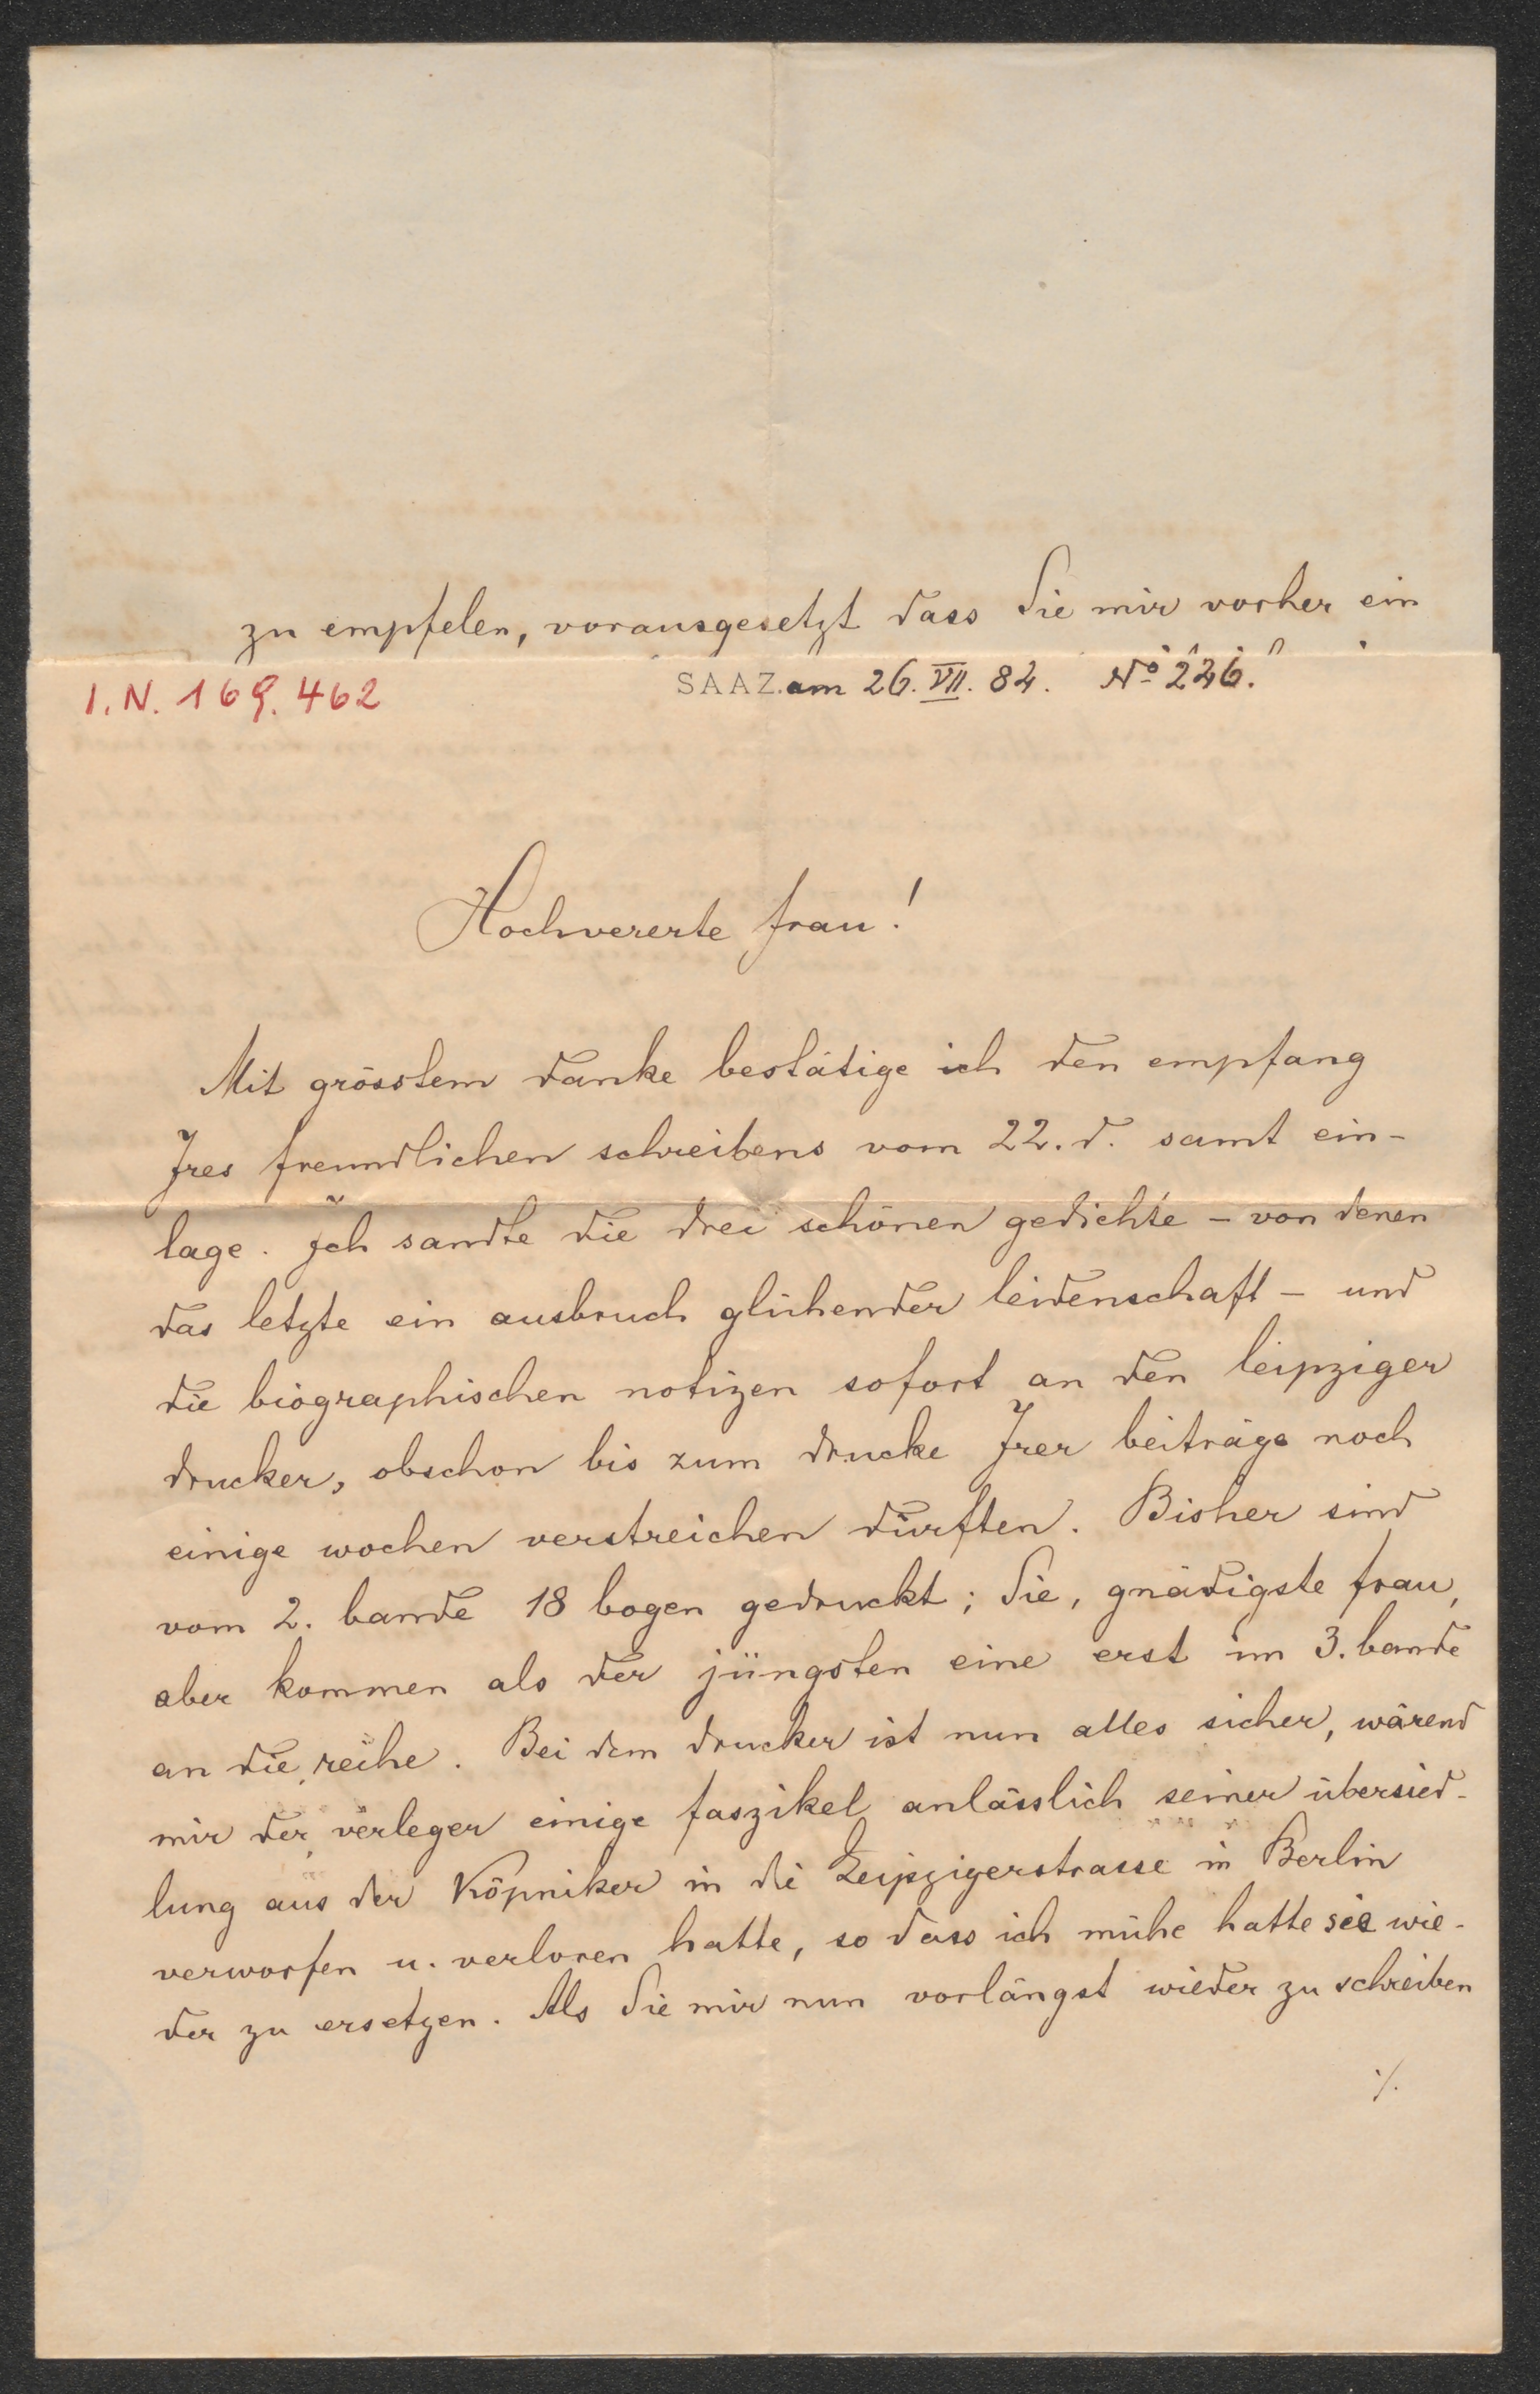 zu empfelen, vorausgesetzt dass Sie mir vorher ein
I. N. 169.462
SAAZ. am 26. VII. 82. No 226.
Hochvererte frau!
Mit grösstem danke bestätige ich den empfang
Jres freundlichen schreibens vom 22. d. samt ein-
lage. Jch sandte die drei schönen gedichte – von denen
das letzte ein ausbruch glühender leidenschaft – und
die biographischen notizen sofort an den leipziger
drucker, obschon bis zum drucke Jrer beiträge noch
einige wochen verstreichen dürften. Bisher sind
vom 2. bande 18 bogen gedruckt; Sie, gnädigste frau,
aber kommen als der jüngsten eine erst im 3. bande
an die reihe. Bei dem drucker ist nun alles sicher, wärend
mir der verleger einige faszikel anlässlich seiner übersied-
lung aus der Köpniker in die Leipzigerstrasse in Berlin
verworfen u. verloren hatte, so dass ich mühe hatte sie wie-
der zu ersetzen. Als Sie mir nun vorlängst wieder zu schreiben
./.